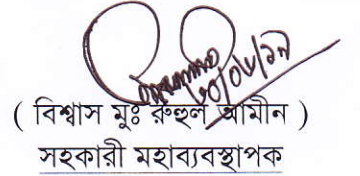 ( বিশ্বাস মুঃ রুহুল আমীন )
সহকারী মহাব্যবস্থাপক